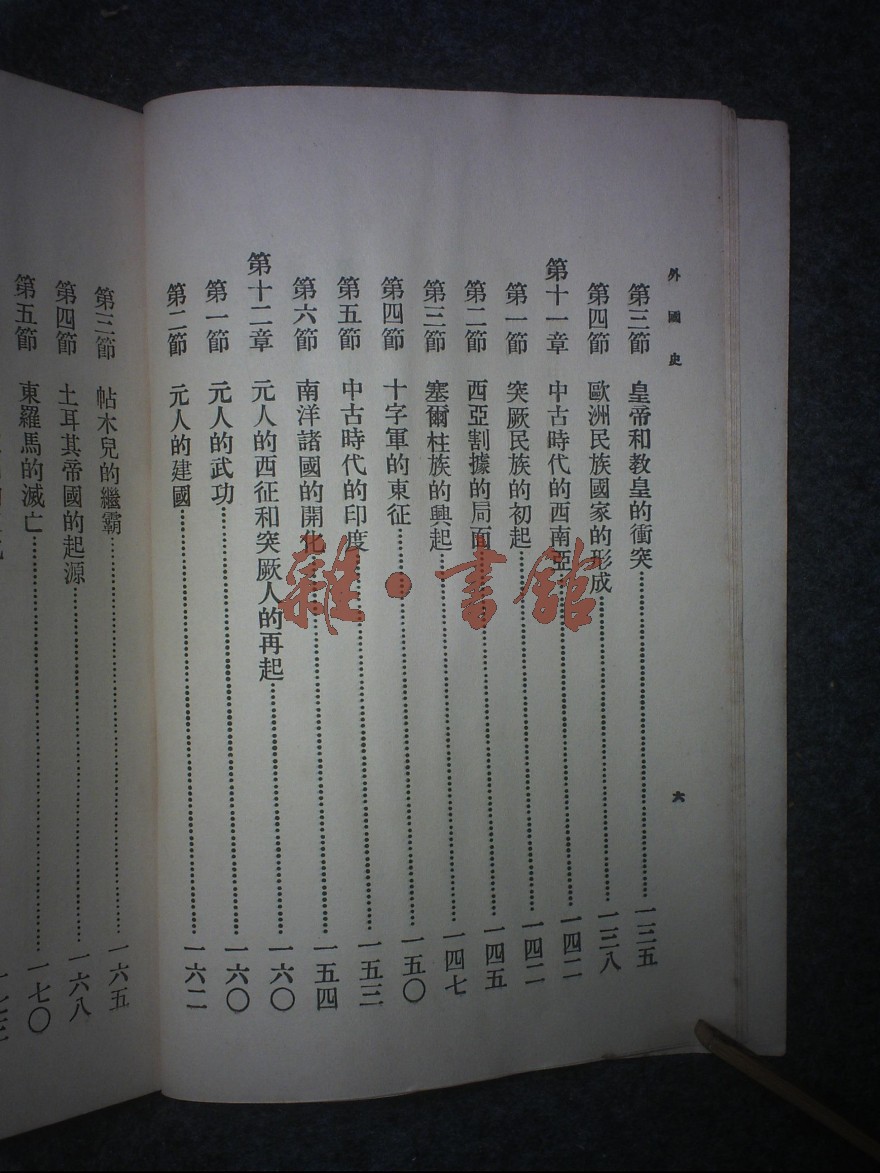 外國史
六
第三節 皇帝和教皇的衝突……一三五
第四節 歐洲民族國家的形成……一三八
第十一章 中古時代的西南亞……一四二
第一節 突厥民族的初起……一四二
第二節 西亞割據的局面……一四五
第三節 塞爾柱族的興起……一四七
第四節 十字軍的東征……一五〇
第五節 中古時代的印度……一五三
第六節 南洋諸國的開化……一五四
第十二章 元人的西征和突厥人的再起……一六〇
第一節 元人的武功……一六〇
第二節 元人的建國……一六二
第三節 帖木兒的繼霸……一六五
第四節 土耳其帝國的起源……一六八
第五節 東羅馬的滅亡……一七〇
雜·書館